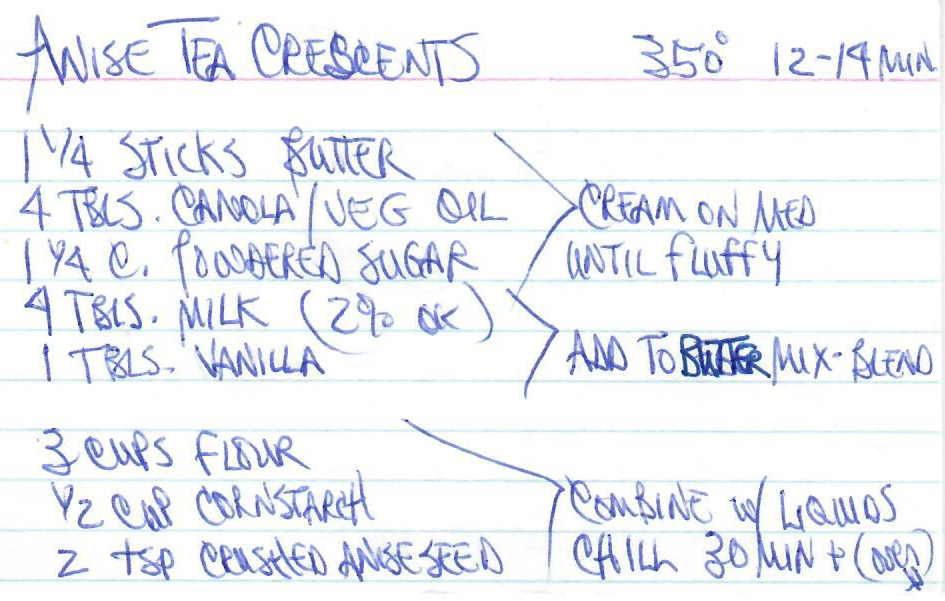 ANISE TEA CRESCENTS 350° 12-14 MIN
1 1/4 STICKS BUTTER
4 TBLS. CANOLA/VEG OIL
1 1/4 C. POWDERED SUGAR
CREAM ON MED
UNTIL FLUFFY
4 TBLS. MILK (2% OK)
1 TBLS. VANILLA
ADD TO BUTTER MIX-BLEND
3 CUPS FLOUR
1/2 CUP CORNSTARCH
2 tSP CRUSHED ANISE SEED
COMBINE w/ LIQUIDS
CHILL 30 MIN + (OVER)